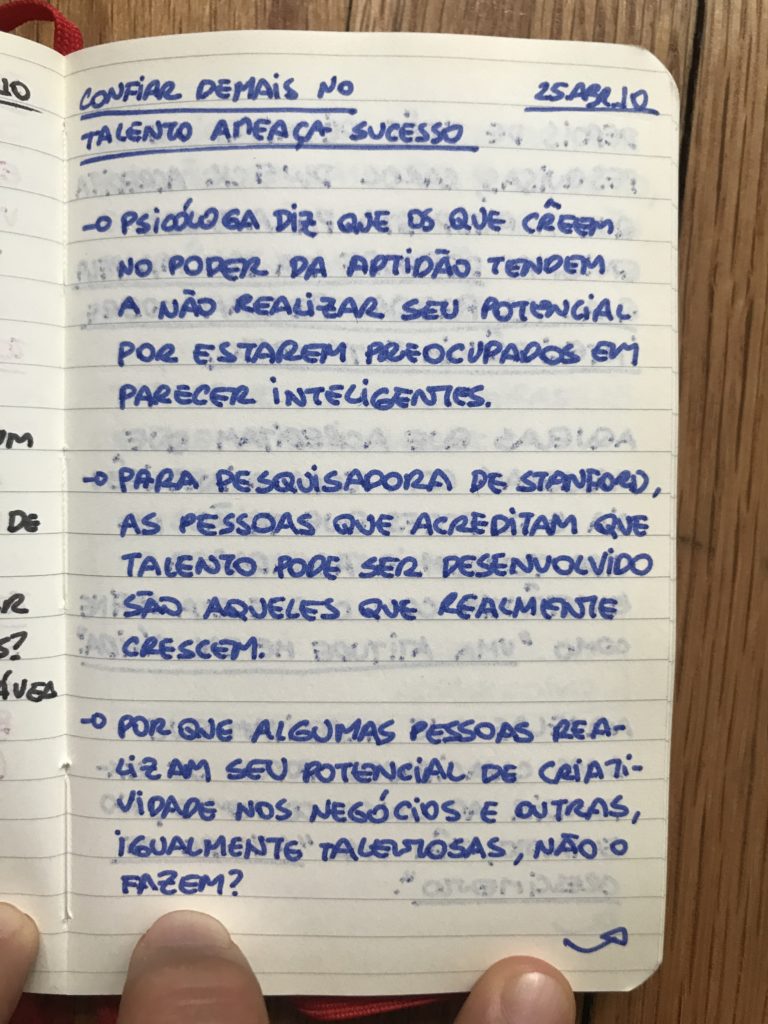 CONFIAR DEMAIS NO
25.ABR.10
TALENTO AMEAÇA SUCESSO
→ PSICÓLOGA DIZ QUE OS QUE CRÊEM
NO PODER DA APTIDÃO TENDEM
A NÃO REALIZAR SEU POTENCIAL
POR ESTAREM PREOCUPADOS EM
PARECER INTELIGENTES.
→ PARA PESQUISADORA DE STANFORD,
AS PESSOAS QUE ACREDITAM QUE
TALENTO PODE SER DESENVOLVIDO
SÃO AQUELES QUE REALMENTE
CRESCEM.
→ POR QUE ALGUMAS PESSOAS REA-
LIZAM SEU POTENCIAL DE CRIATI-
VIDADE NOS NEGÓCIOS E OUTRAS,
IGUALMENTE TALENTOSAS, NÃO O
FAZEM?
10
DE